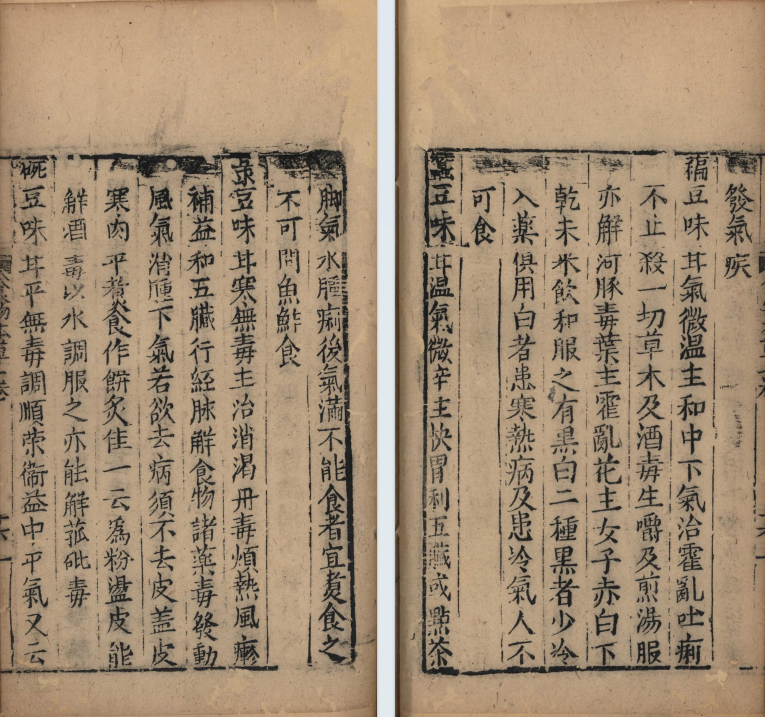 脚氣水腫痢後氣滿不能食者宜煑食之
不可同魚鮓食
菉豆味甘寒無毒主治消渴丹毒煩熱風㾦
補益和五臓行經脉解食物諸藥毒發動
風氣消腫下氣若欲去病須不去皮蓋皮
寒肉平煑食作餅炙佳一云爲粉盪皮能
解酒毒以水調服之亦能解菰砒毒
豌豆味甘平無毒調順榮衞益中平氣又云
發氣疾
稨豆味甘氣微温主和中下氣治霍亂吐痢
不止殺一切草木及酒毒生嚼及煎湯服
亦解河豚毒葉主霍亂花主女子赤白下
乾末米飲和服之有黒白二種黒者少冷
入藥俱用白者患寒熱病及患冷氣人不
可食
蠶豆味甘温氣微辛主快胃利五臓或㸃茶